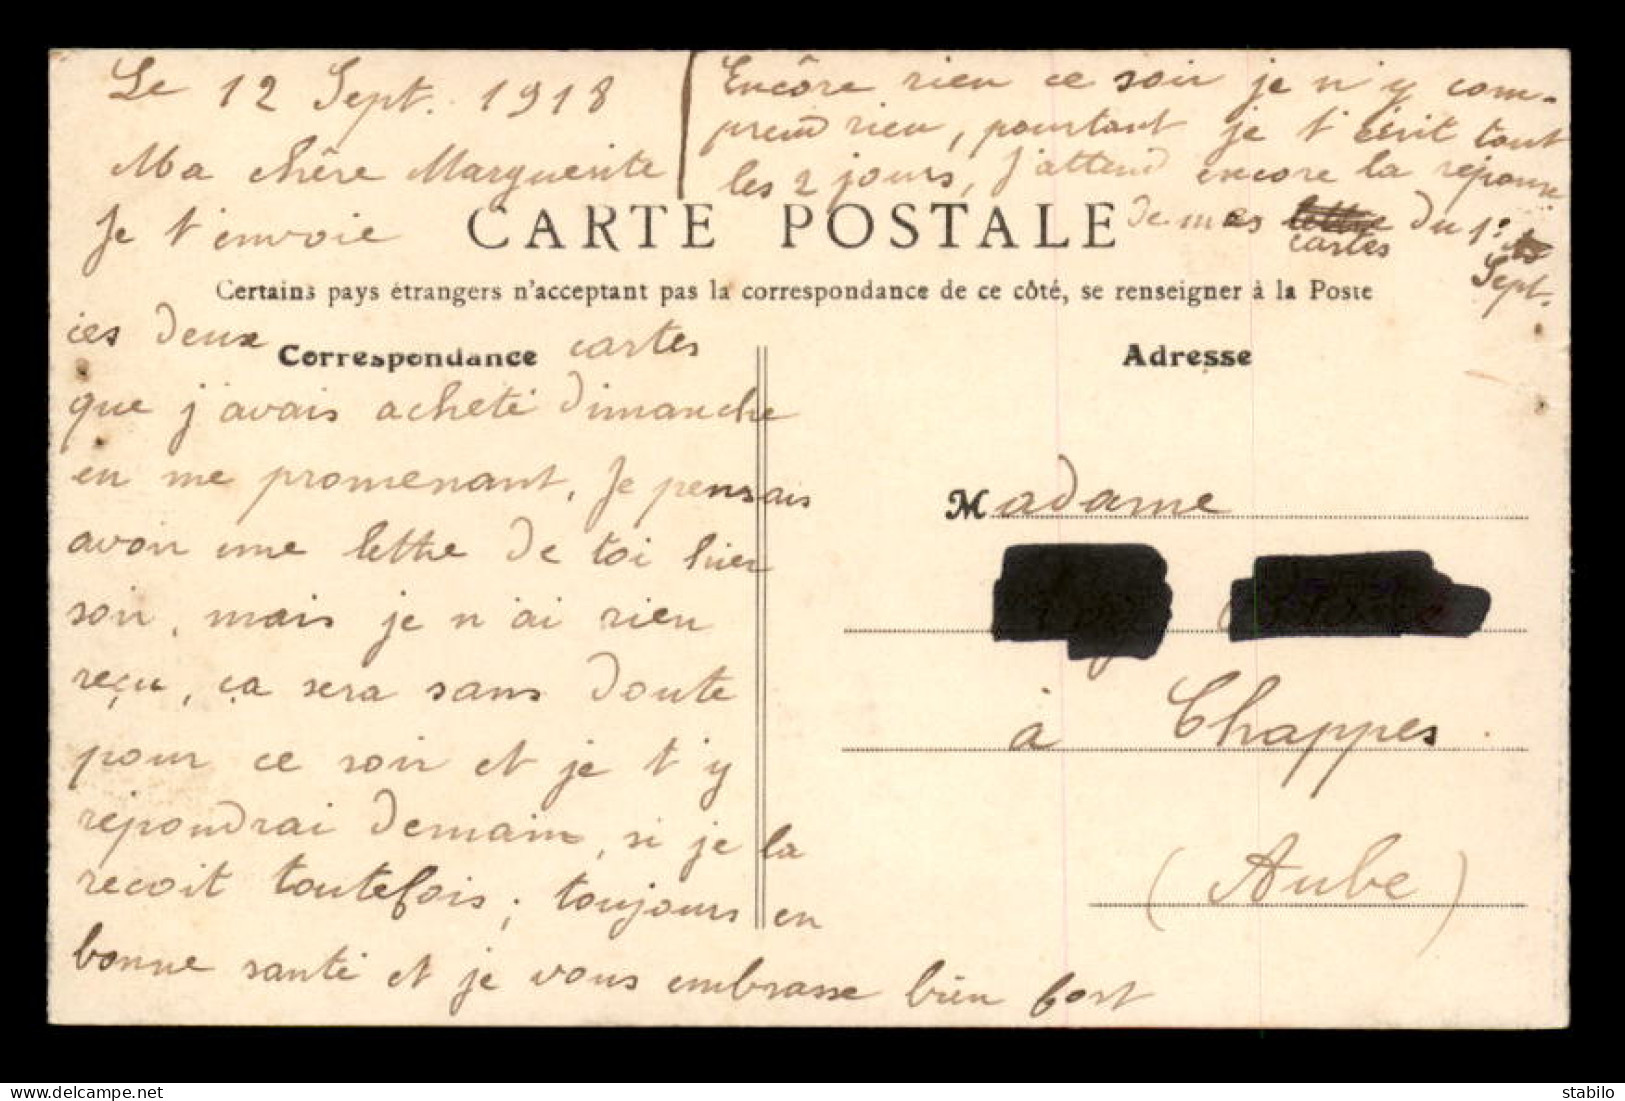 Le 12 Sept. 1918
Ma chère Marguerite
Je t'envoie
ces deux cartes
que j'avais acheté dimanche
en me promenant, Je pensais
avoir une lettre de toi hier
soir, mais je n'ai rien
reçu, ça sera sans doute
pour ce soir et je t'y
répondrai demain, si je la
recoit toutefois; toujours en
bonne santé et je vous embrasse bien fort
Encôre rien ce soir je n'y com-
prend rien, pourtant je t'écrit tout
les 2 jours, J'attend encore la réponse
de mes lettre du 1º
cartes
Sept.
CARTE POSTALE
Certains pays étrangers n'acceptant pas la correspondance de ce côté, se renseigner à la Poste
Correspondance
Adresse
Madame
à Chappes
(Aube)
stabilo